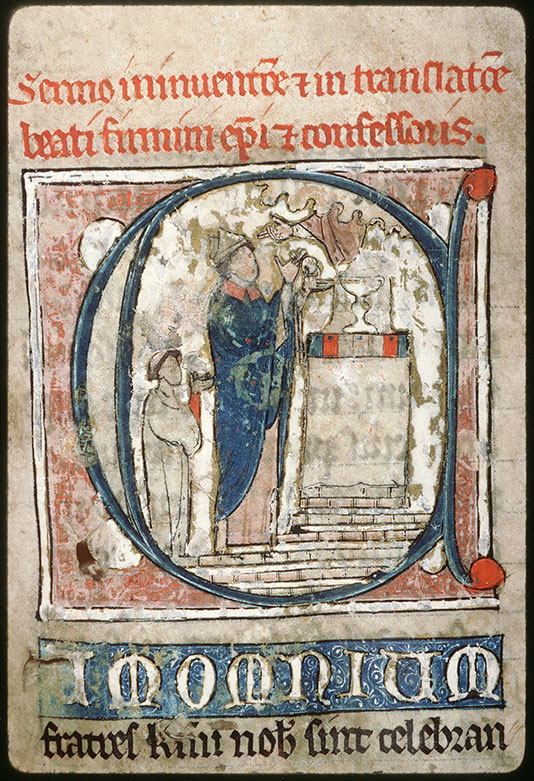 Sermo in inuent̄oe ⁊ in translat̄oe
beati firmini ep̄i ⁊ confessoris.
IM OMNIUM
fratres k̄mi nob̄ sint celebran